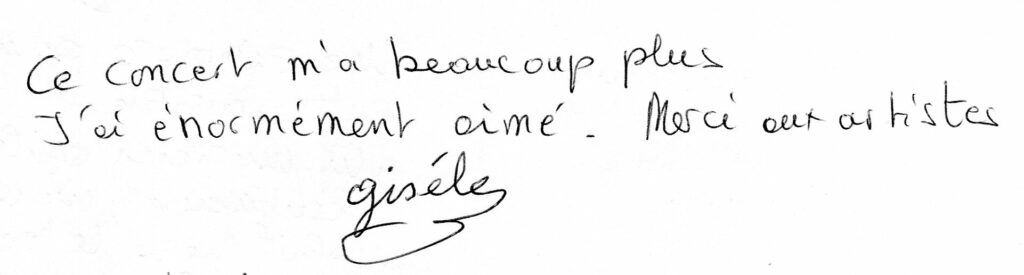 Ce concert m'a beaucoup plus
J'ai énormément aimé. Merci aux artistes
giséle